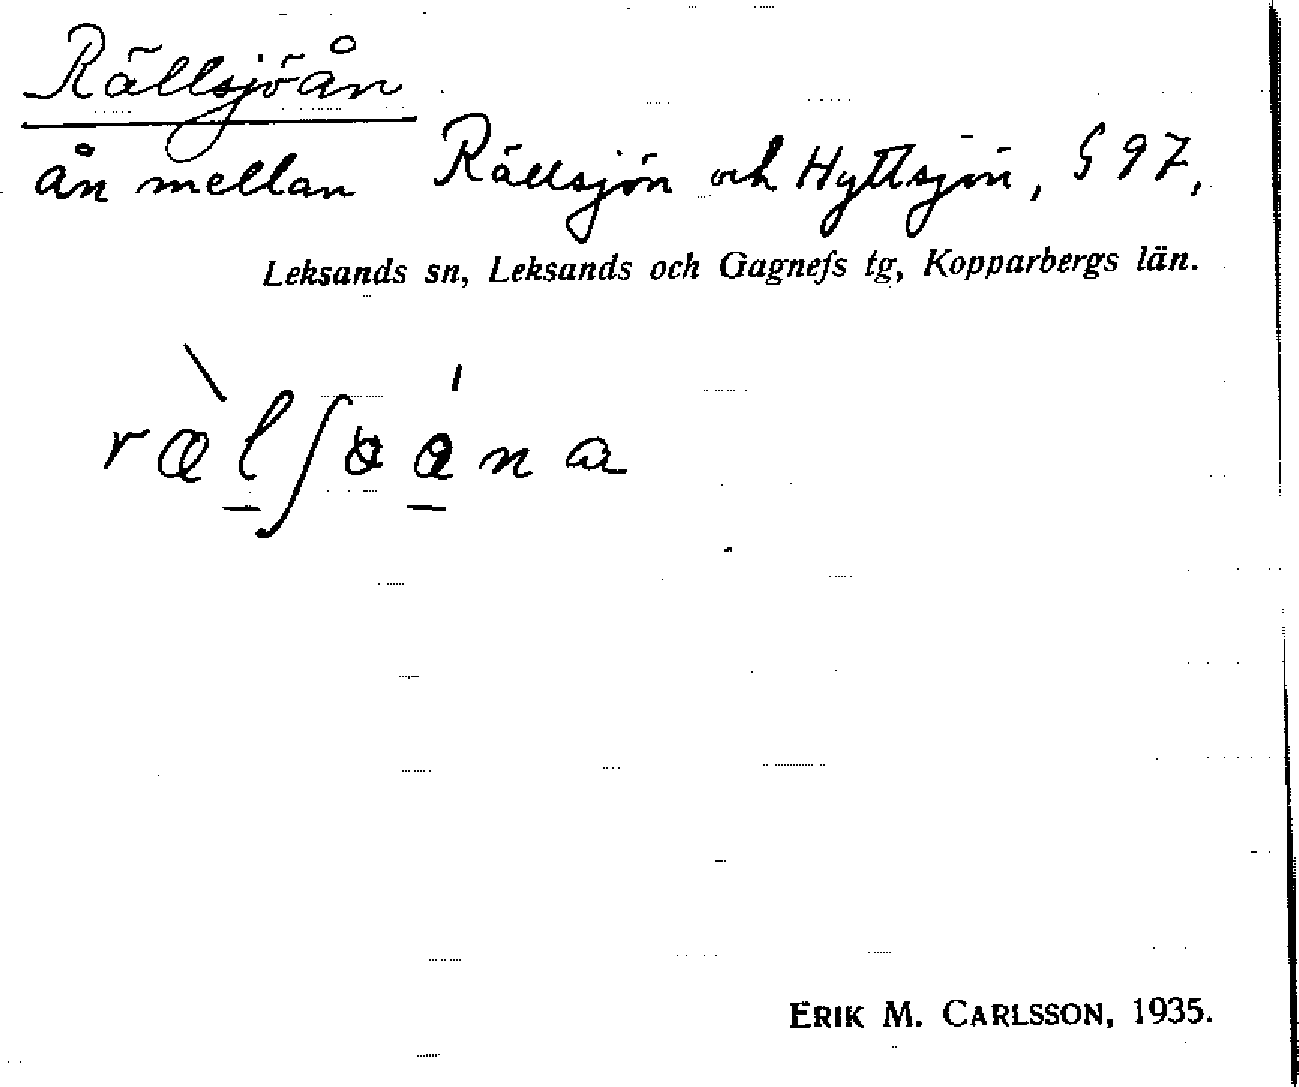 Rällsjöån
ån mellan Rällsjön och Hyttsjön, § 97,
Leksands sn, Leksands och Gagnefs tg, Kopparbergs län.
ERIK M. CARLSSON, 1935.